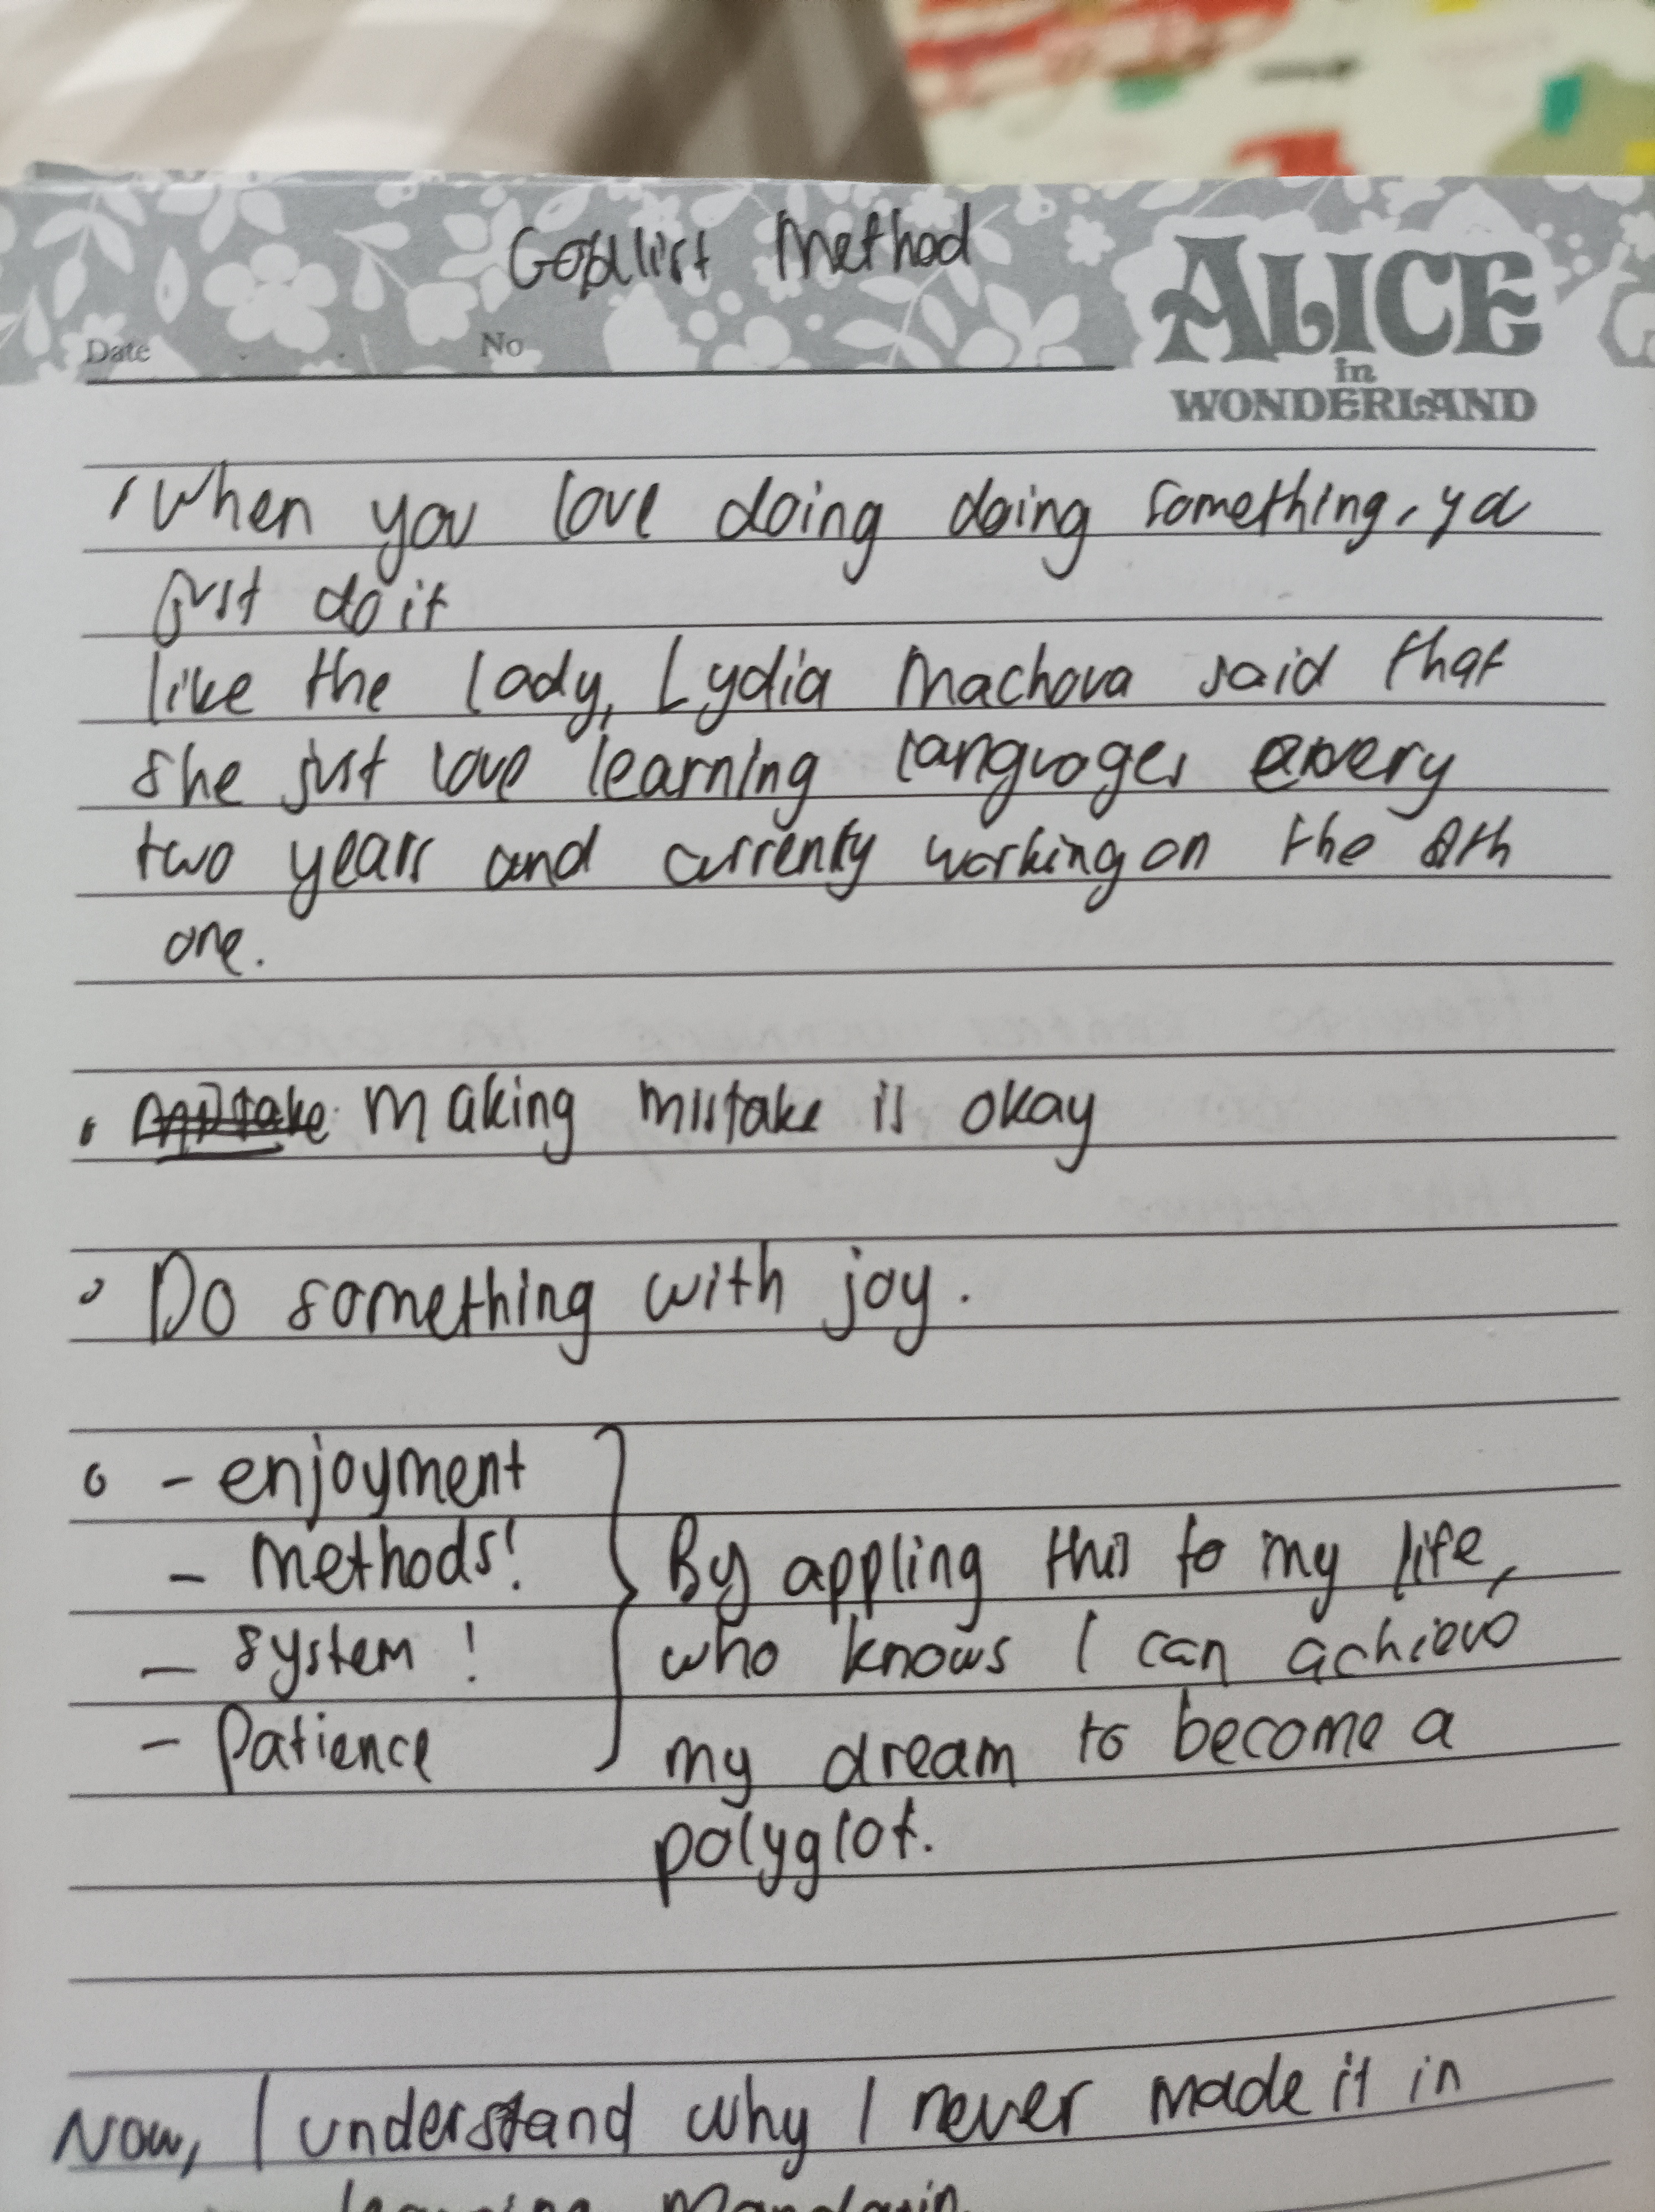 Goldlist Method
ALICE
in
WONDERLAND
Date No
When you love doing doing something, ya
just do it
like the lady, Lydia Machova said that
she just love learning languages every
two years and currenty working on the
one.
mistake Making mistake is okay
Do something with joy.
- enjoyment
- Methods!
- system !
- Patience
By appling this to my life,
who knows I can achieve
my dream to become a
polyglot.
Now, I understand why I never made it in
learning Mandarin